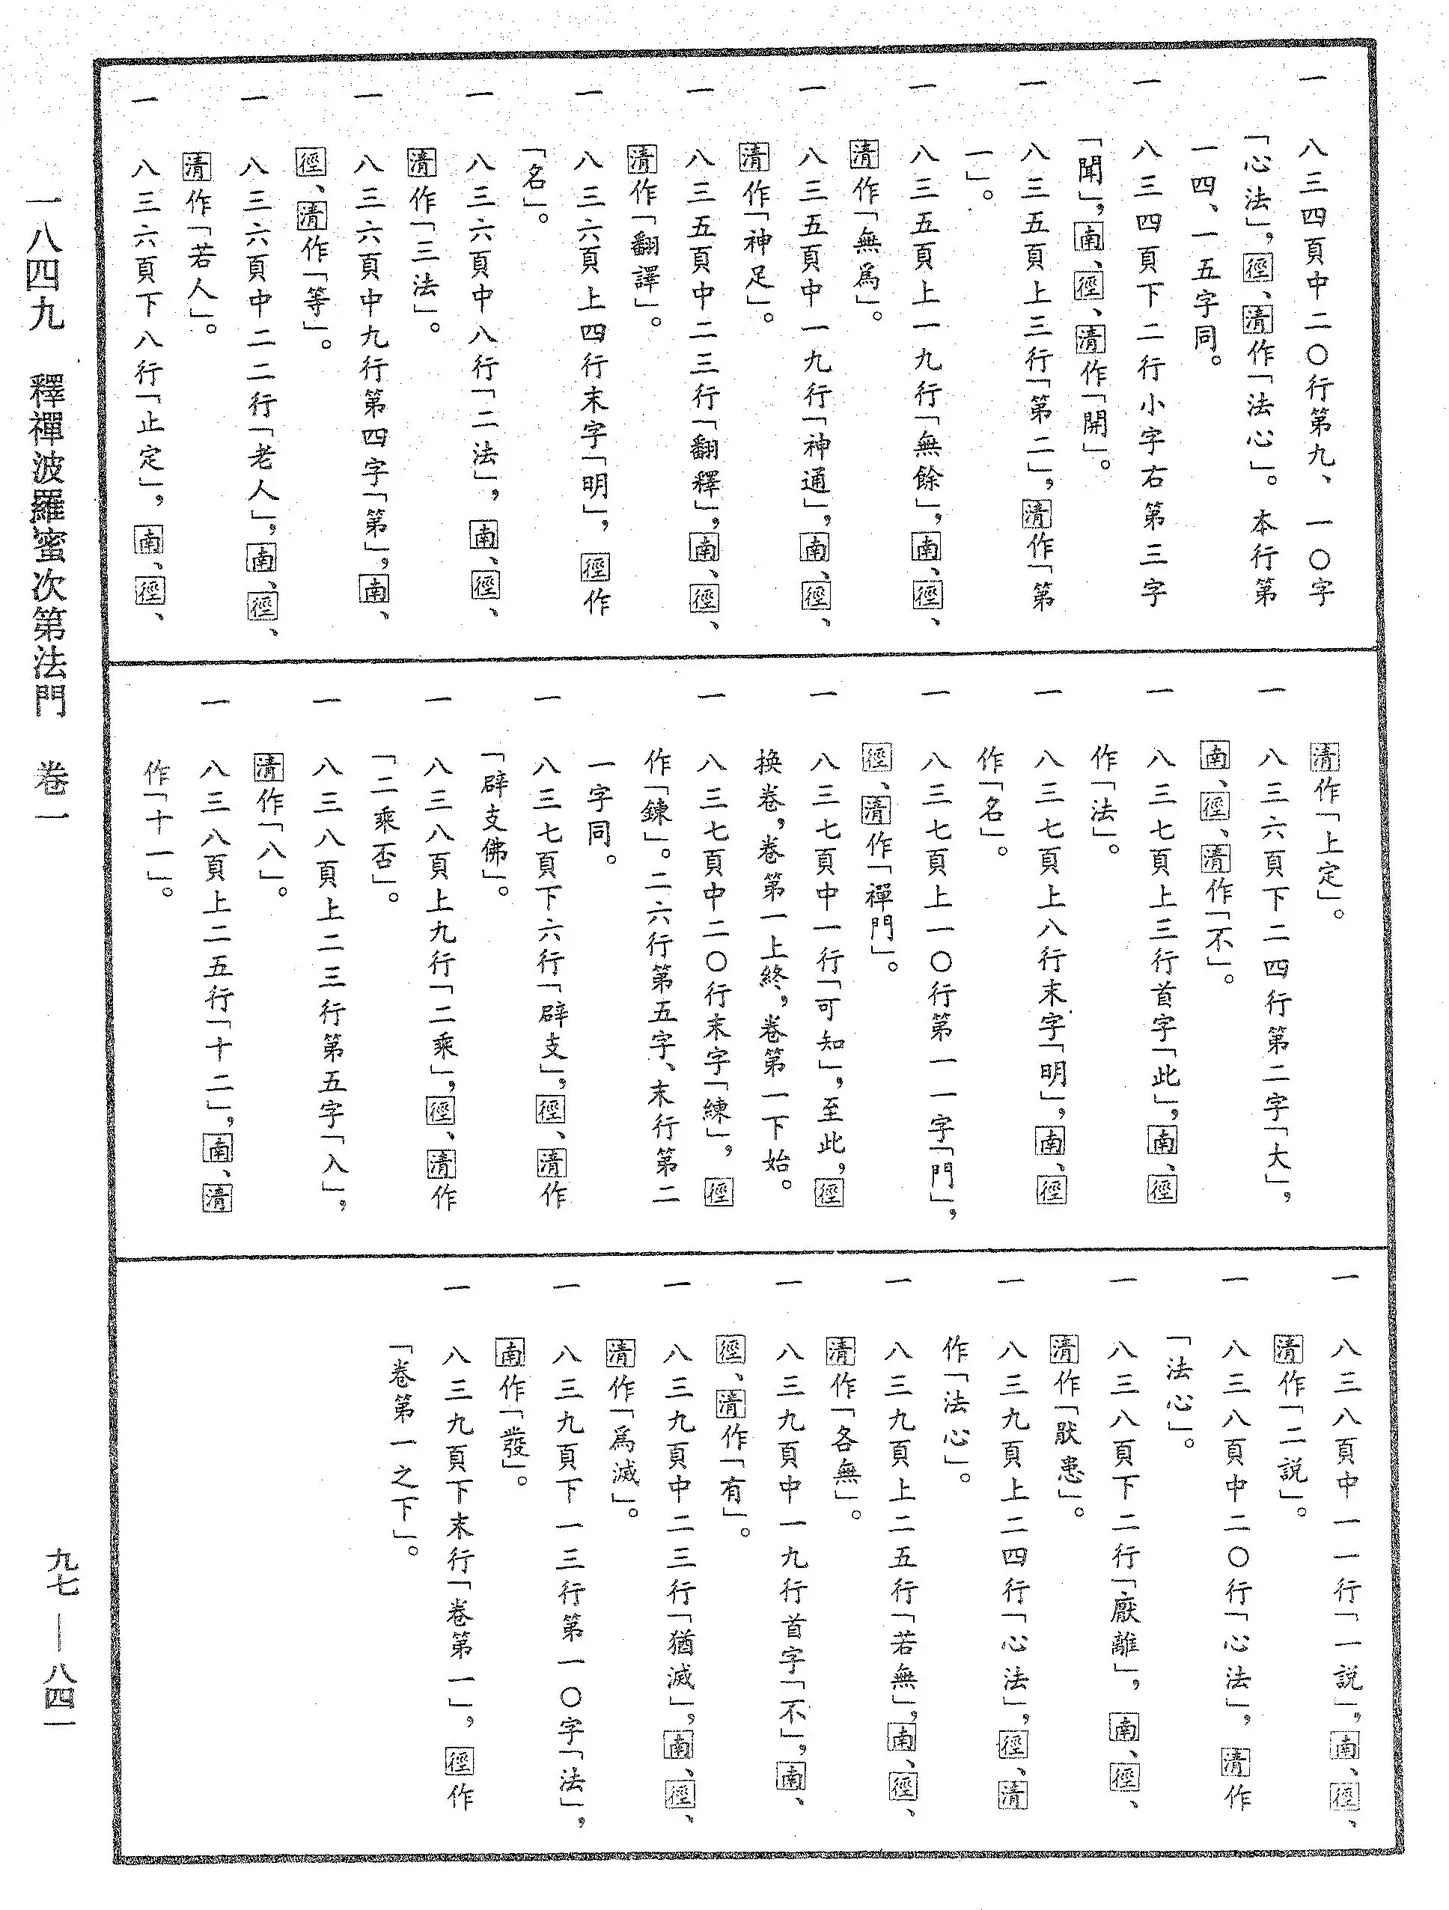 一 八三四頁中二〇行第九、一〇字
「心法」，徑、清作「法心」。本行第
一四、一五字同。
一 八三四頁下二行小字右第三字
「聞」，南、徑、清作「開」。
一 八三五頁上三行「第二」，清作「第
一」。
一 八三五頁上一九行「無餘」，南、徑、
清作「無爲」。
一 八三五頁中一九行「神通」，南、徑、
清作「神足」。
一 八三五頁中二三行「翻釋」，南、徑、
清作「翻譯」。
一 八三六頁上四行末字「明」，徑作
「名」。
一 八三六頁中八行「二法」，南、徑、
清作「三法」。
一 八三六頁中九行第四字「第」，南、
徑、清作「等」。
一 八三六頁中二二行「老人」，南、徑、
清作「若人」。
一 八三六頁下八行「止定」，南、徑、
清作「上定」。
一 八三六頁下二四行第二字「大」，
南、徑、清作「不」。
一 八三七頁上三行首字「此」，南、徑
作「法」。
一 八三七頁上八行末字「明」，南、徑
作「名」。
一 八三七頁上一〇行第一一字「門」，
徑、清作「禪門」。
一 八三七頁中一行「可知」，至此，徑
換卷，卷第一上終，卷第一下始。
一 八三七頁中二〇行末字「練」，徑
作「鍊」。二六行第五字、末行第二
一字同。
一 八三七頁下六行「辟支」，徑、清作
「辟支佛」。
一 八三八頁上九行「二乘」，徑、清作
「二乘否」。
一 八三八頁上二三行第五字「入」，
清作「八」。
一 八三八頁上二五行「十二」，南、清
作「十一」。
一 八三八頁中一一行「一説」，南、徑、
清作「二説」。
一 八三八頁中二〇行「心法」，清作
「法心」。
一 八三八頁下二行「厭離」，南、徑、
清作「猒患」。
一 八三九頁上二四行「心法」，徑、清
作「法心」。
一 八三九頁上二五行「若無」，南、徑、
清作「各無」。
一 八三九頁中一九行首字「不」，南、
徑、清作「有」。
一 八三九頁中二三行「猶滅」，南、徑、
清作「爲滅」。
一 八三九頁下一三行第一〇字「法」，
南作「發」。
一 八三九頁下末行「卷第一」，徑作
「卷第一之下」。
一八四九 釋禪波羅蜜次第法門 卷一
九七—八四一